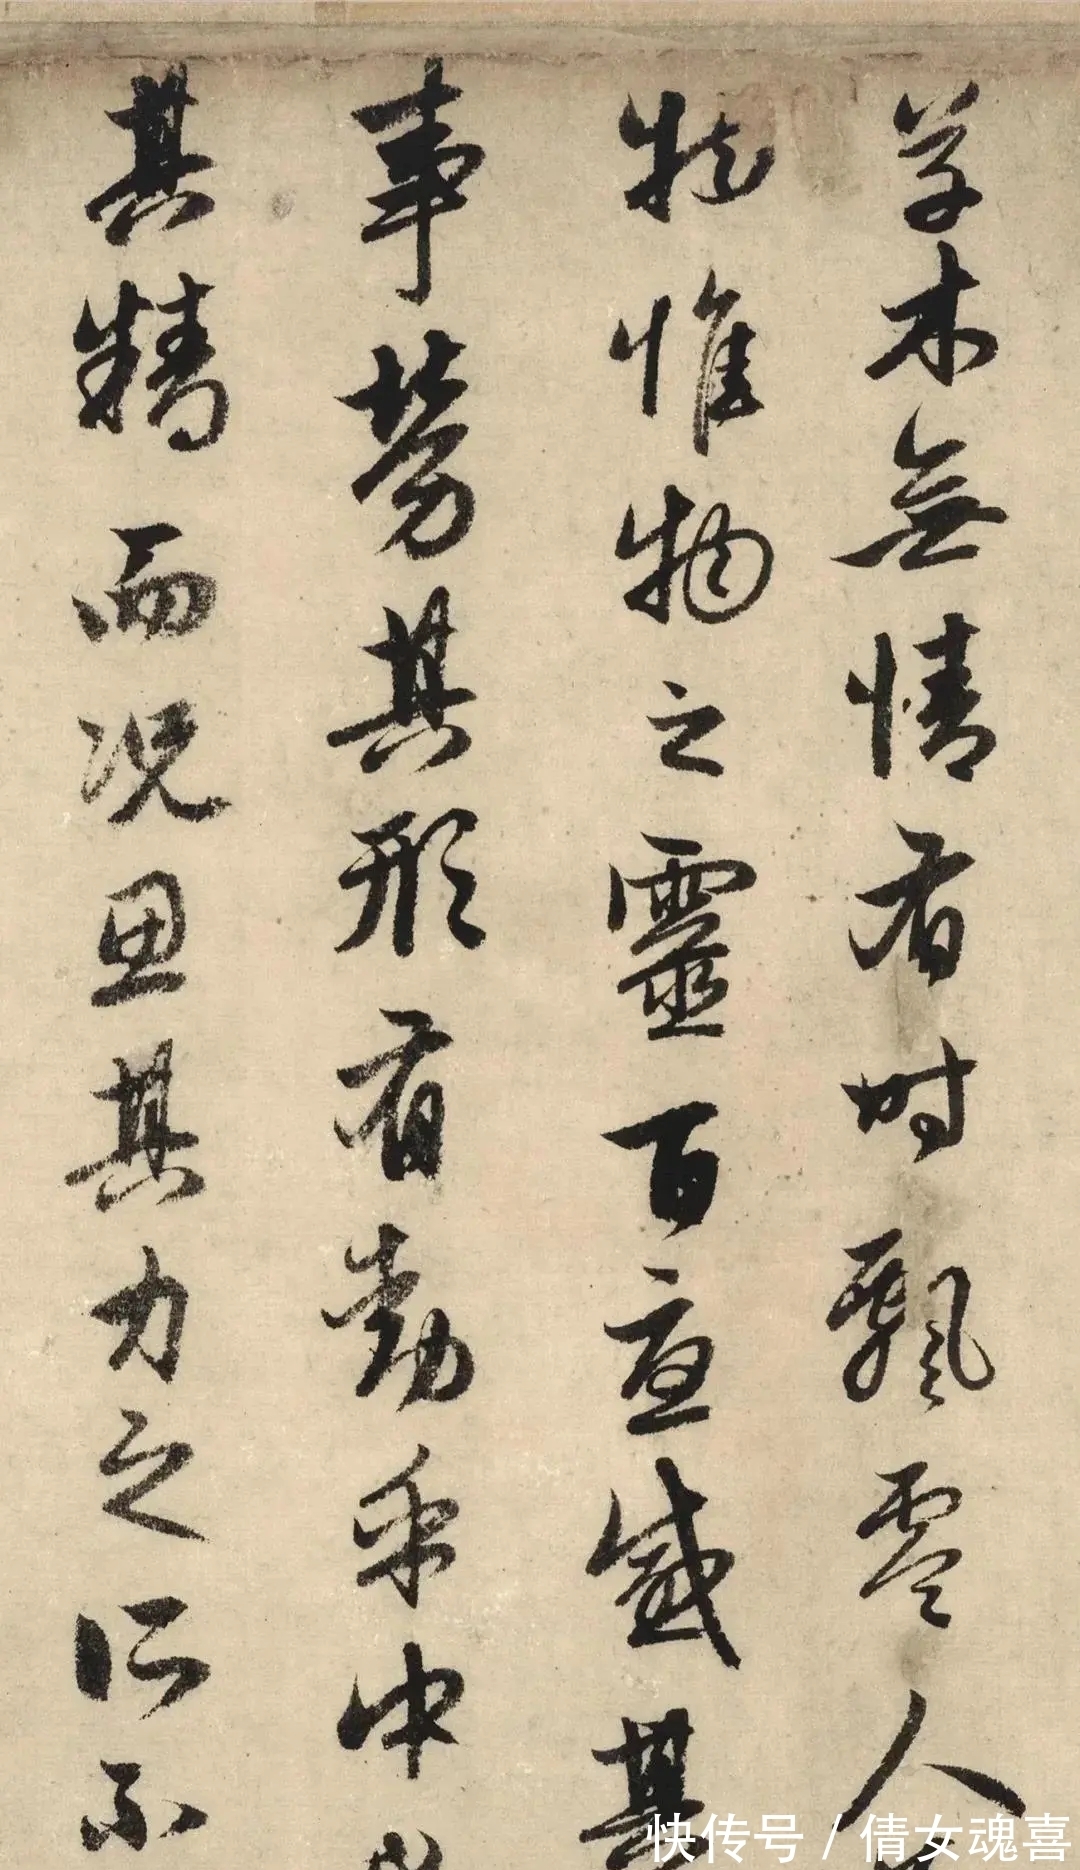 草木無情有时飄零人
物惟物之靈百憂感其
事勞其形有動乎中
其精而况思其力之所不
快传号 / 倩女魂喜